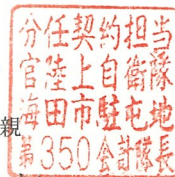 分任契約担当
官陸上自衛隊
親
海田市駐屯地
第350会計隊長